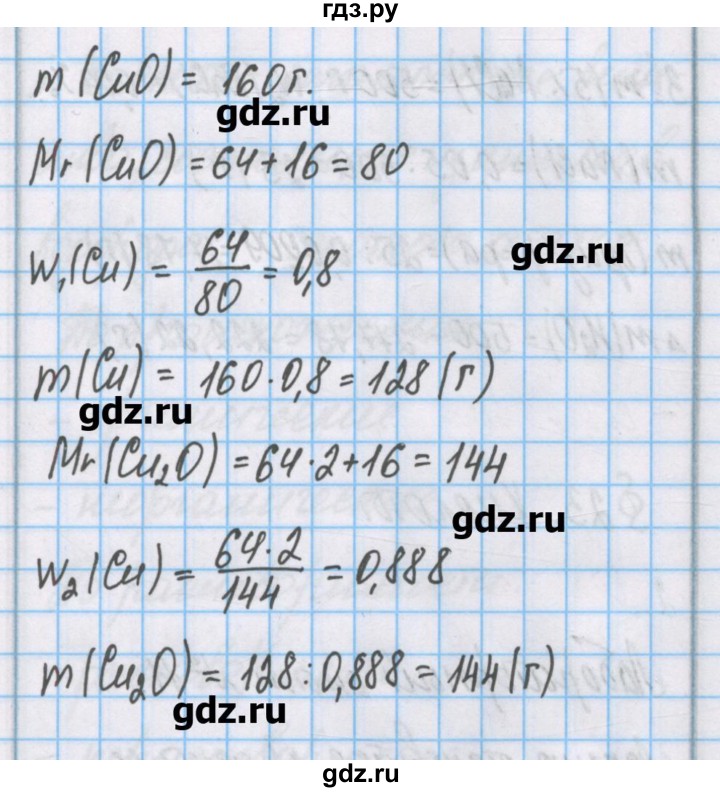 гдз.ру
m(CuO) = 160 г.
gdz.ru
Mr(CuO) = 64 + 16 = 80
gdz.ru
W₁(Cu) = 64/80 = 0,8
m(Cu) = 160 · 0,8 = 128 (г)
gdz.ru
Mr(Cu₂O) = 64 · 2 + 16 = 144
gdz.ru
W₂(Cu) = 64 · 2/144 = 0,888
m(Cu₂O) = 128 : 0,888 = 144 (г)
gdz.ru
gdz.ru